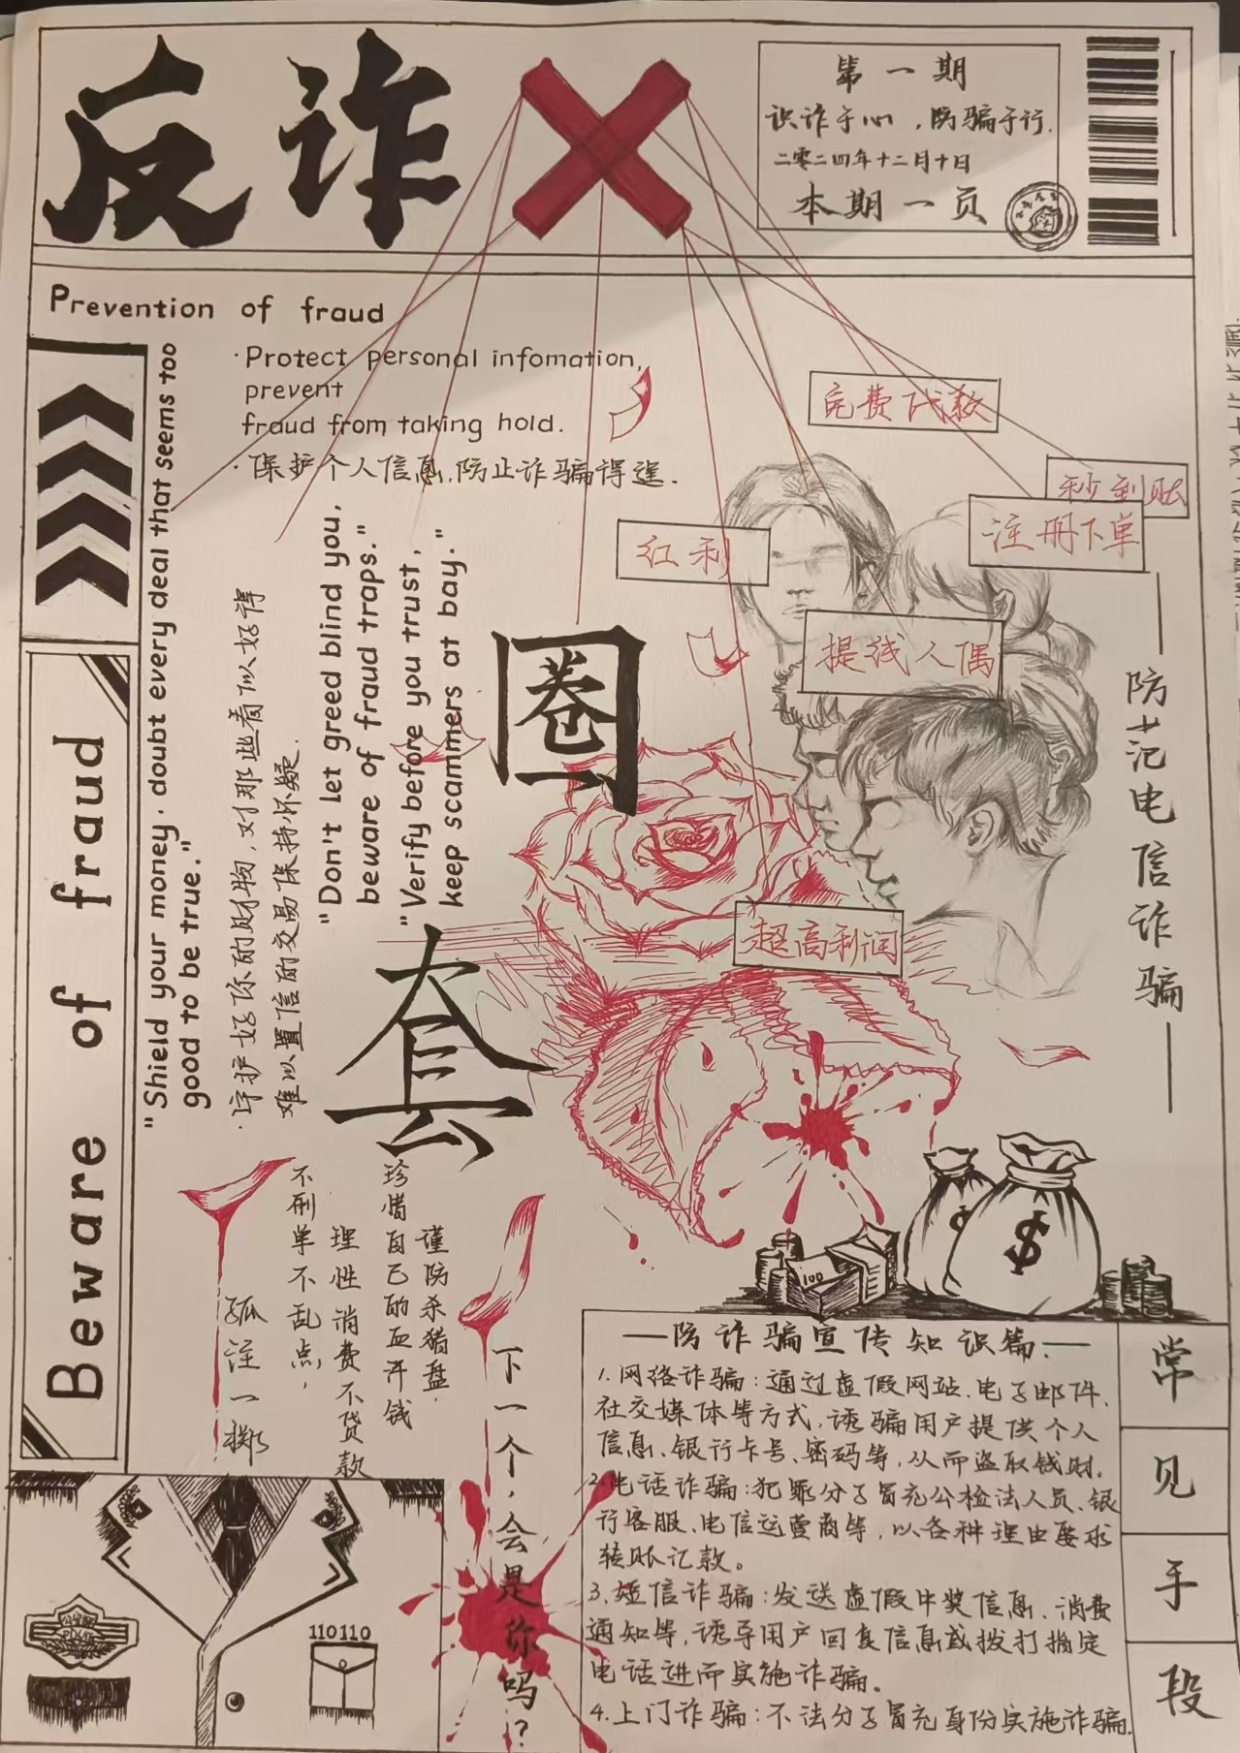 反诈
第一期
识诈于心，防骗于行.
二零二四年十二月十日
本期一页
Prevention of fraud
· Protect personal infomation,
prevent
fraud from taking hold.
· 保护个人信息,防止诈骗得逞.
免费代款
秒到账
注册下单
红利
提线人偶
超高利润
Beware of fraud
"Shield your money · doubt every deal that seems too
good to be true."
· 守护好你的财物,对那些看似好得
难以置信的交易保持怀疑.
"Don't let greed blind you,
beware of fraud traps."
"Verify before you trust,
keep scammers at bay."
圈
套
防范电信诈骗
谨防杀猪盘.
珍惜自己的血汗钱
理性消费不贷款
不刷单不乱点,
孤注一掷
下一个,会是你吗?
100
$
110110
—防诈骗宣传知识篇.—
1.网络诈骗:通过虚假网站、电子邮件.
社交媒体等方式,诱骗用户提供个人
信息、银行卡号、密码等,从而盗取钱财.
2.电话诈骗:犯罪分子冒充公检法人员、银
行客服、电信运营商等,以各种理由要求
转账汇款。
3.短信诈骗:发送虚假中奖信息、消费
通知等,诱导用户回复信息或拨打指定
电话进而实施诈骗。
4.上门诈骗:不法分子冒充身份实施诈骗.
常见手段